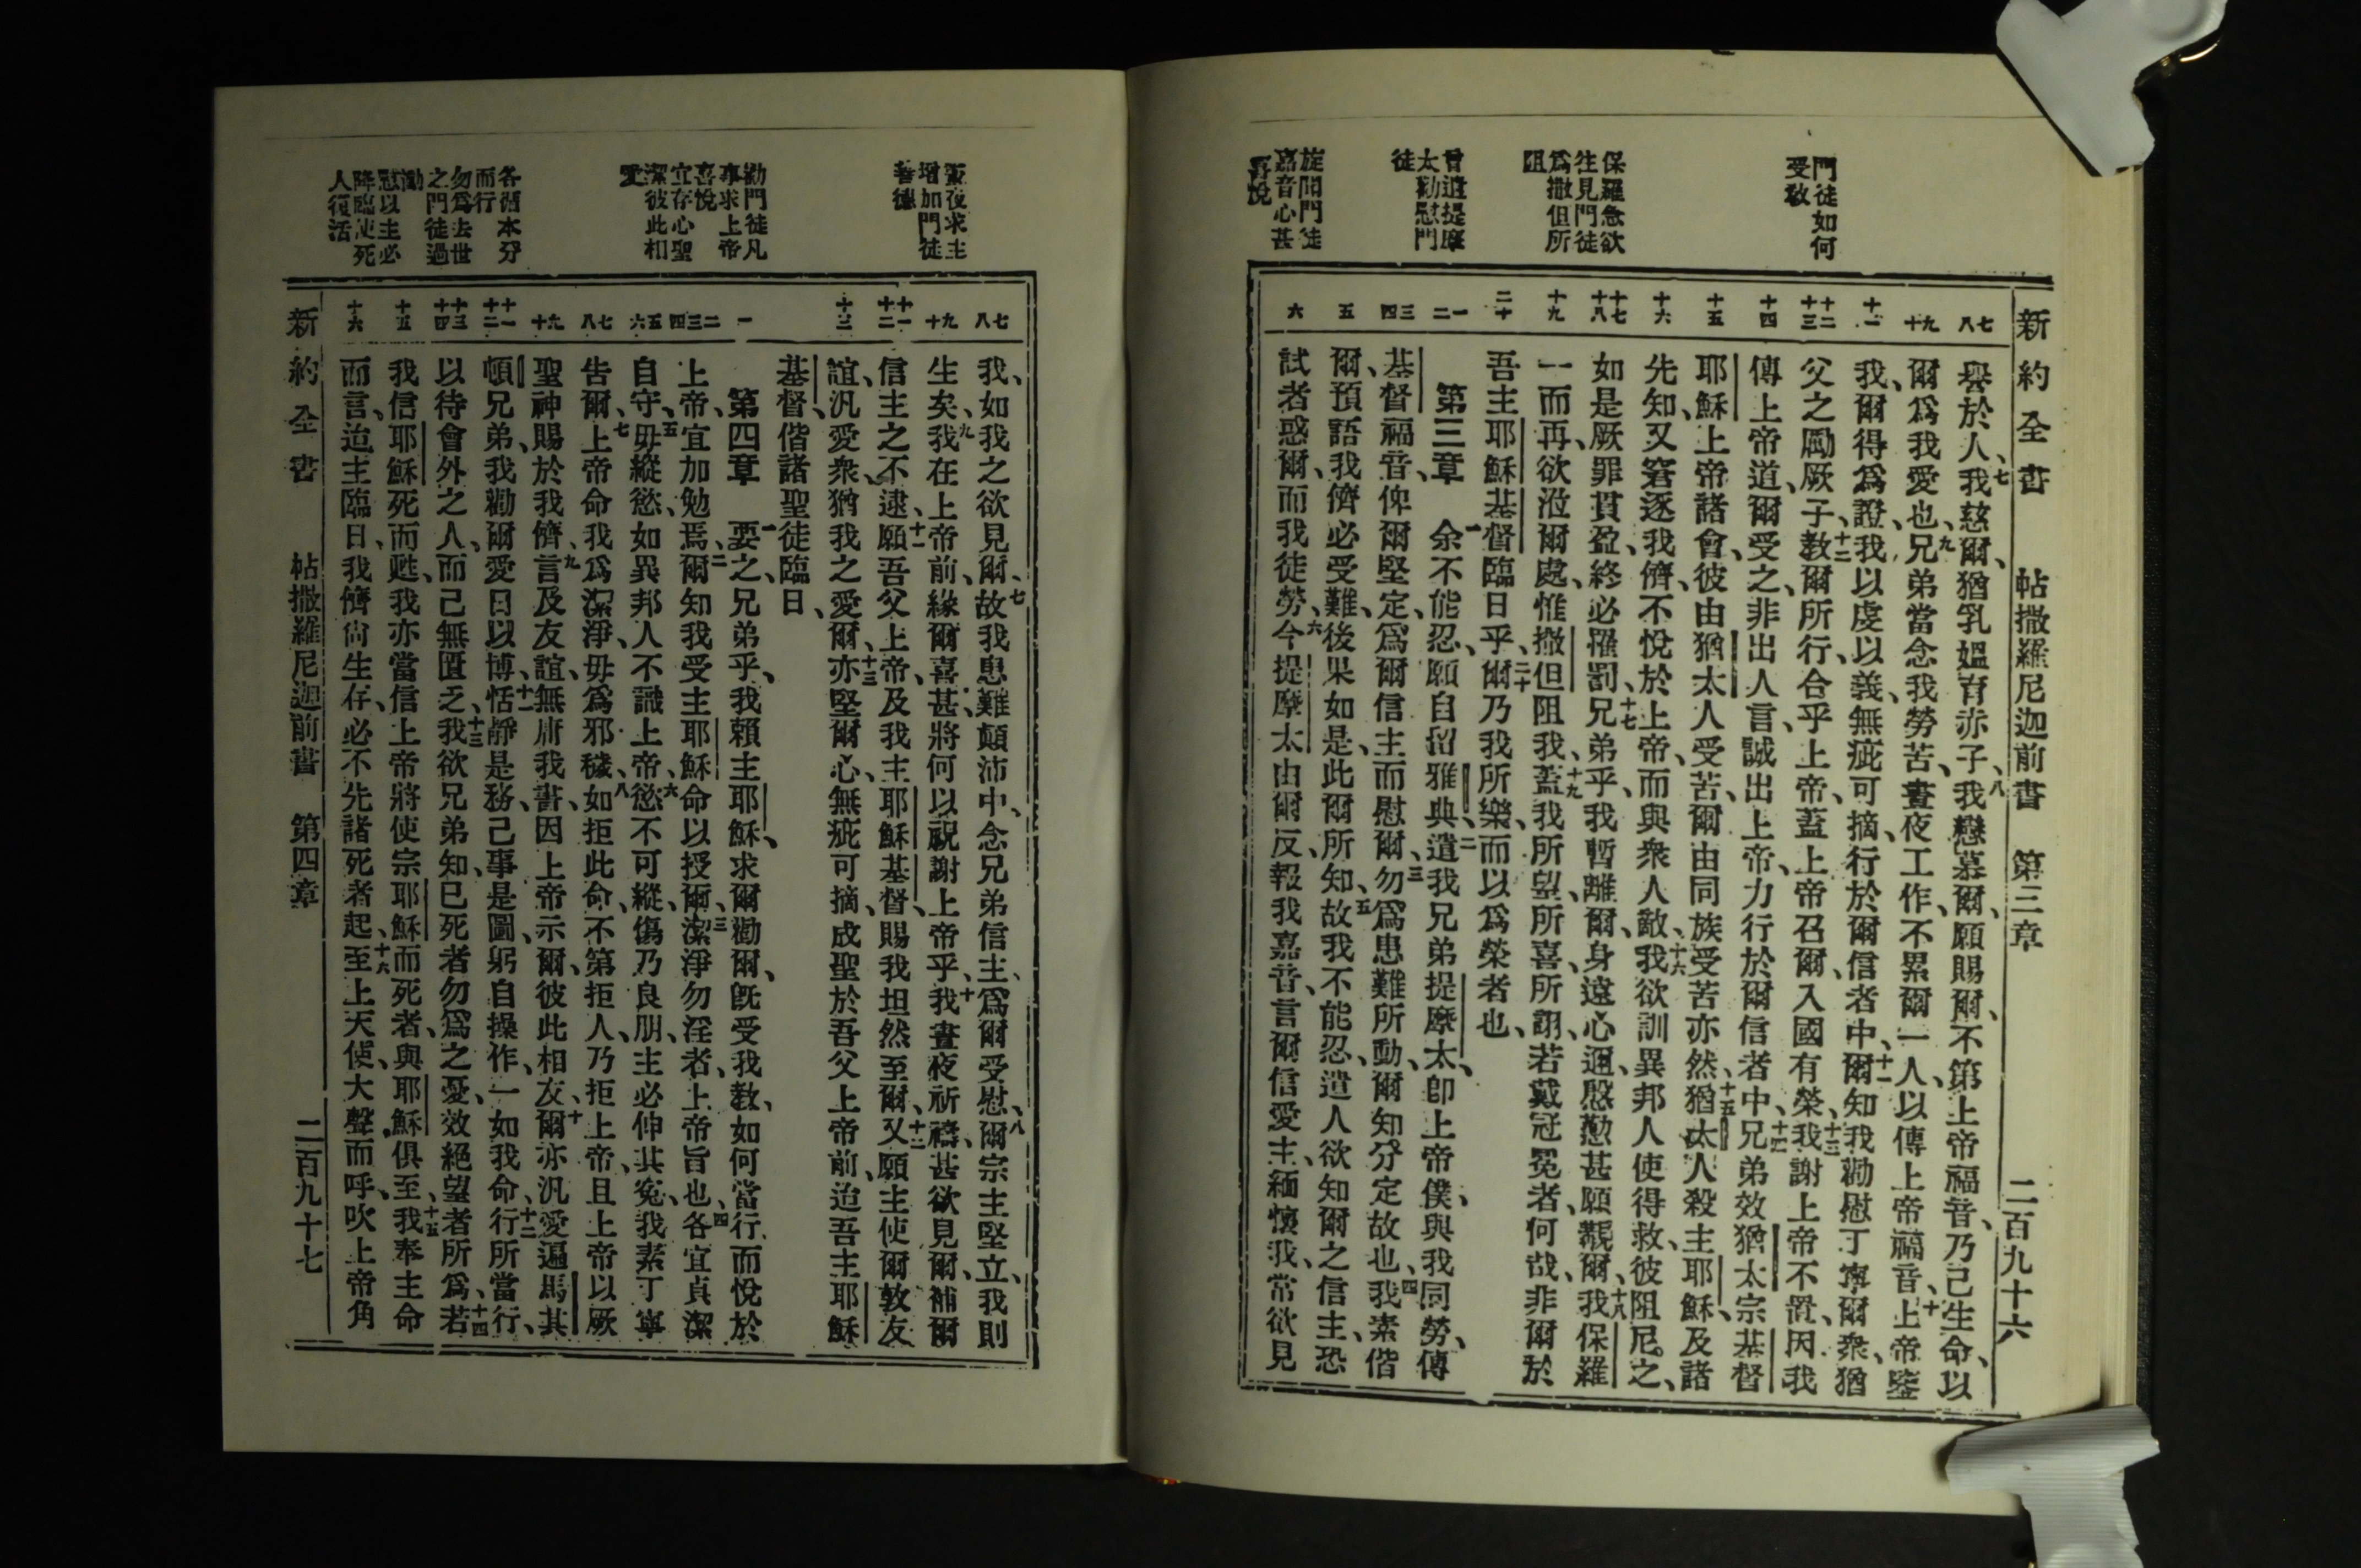 門徒如何
受敎
保羅急欲
往見門徒
爲撒但所
阻
曾遣提摩
太勸慰門
徒
旋聞門徒
嘉音心甚
喜悅
新約全書 帖撒羅尼迦前書 第三章 二百九十六
七八
九十
十一
十二十三
十四
十五
十六
十七十八
十九
二十
一二
三四
五
六
譽於人、七我慈爾、猶乳媼育赤子、八我戀慕爾、願賜爾、不第上帝福音、乃己生命、以
爾爲我愛也、九兄弟當念我勞苦、晝夜工作、不累爾一人、以傳上帝福音、十上帝鑒
我、爾得爲證、我以虔以義、無疵可摘、行於爾信者中、十一爾知我勸慰丁寧爾衆、猶
父之勵厥子、十二敎爾所行、合乎上帝、蓋上帝召爾、入國有榮、十三我謝上帝不置、因我
傳上帝道、爾受之、非出人言、誠出上帝、力行於爾信者中、十四兄弟效猶太宗基督
耶穌上帝諸會、彼由猶太人受苦、爾由同族受苦亦然、十五猶太人殺主耶穌、及諸
先知、又窘逐我儕、不悅於上帝、而與衆人敵、十六我欲訓異邦人使得救、彼阻尼之、
如是厥罪貫盈、終必罹罰、十七兄弟乎、我暫離爾、身遠心邇、慇懃甚願覯爾、十八我保羅
一而再、欲涖爾處、惟撒但阻我、十九蓋我所望、所喜、所詡、若戴冠冕者、何哉、非爾於
吾主耶穌基督臨日乎、二十爾乃我所樂、而以爲榮者也、
第三章 一余不能忍、願自留雅典、二遣我兄弟提摩太、卽上帝僕、與我同勞、傳
基督福音、俾爾堅定、爲爾信主而慰爾、三勿爲患難所動、爾知分定故也、四我素偕
爾、預語我儕必受難、後果如是、此爾所知、五故我不能忍、遣人欲知爾之信主、恐
試者惑爾、而我徒勞、六今提摩太由爾反、報我嘉音、言爾信愛主、緬懷我、常欲見
晝夜求主
增加門徒
善德
勸門徒凡
事求上帝
喜悅
宜存心聖
潔彼此相
愛
各循本分
而行
勿爲去世
之門徒過
慟
慰以主必
降臨使死
人復活
七八
九十
十一十二
十三
一
二三四
五六
七八
九十
十一十二
十三十四
十五
十六
我、如我之欲見爾、七故我患難顛沛中、念兄弟信主、爲爾受慰、八爾宗主堅立、我則
生矣、九我在上帝前、緣爾喜甚、將何以祝謝上帝乎、十我晝夜祈禱、甚欲見爾、補爾
信主之不逮、十一願吾父上帝、及我主耶穌基督、賜我坦然至爾、十二又願主使爾敦友
誼、汎愛衆、猶我之愛爾、十三亦堅爾心、無疵可摘、成聖於吾父上帝前、迨吾主耶穌
基督、偕諸聖徒臨日、
第四章 一要之、兄弟乎、我賴主耶穌、求爾勸爾、旣受我敎、如何當行、而悅於
上帝、宜加勉焉、二爾知我受主耶穌命以授爾、三潔淨勿淫者、上帝旨也、四各宜貞潔
自守、五毋縱慾、如異邦人不識上帝、六慾不可縱、傷乃良朋、主必伸其寃、我素丁寧
告爾、七上帝命我爲潔淨、毋爲邪穢、八如拒此命、不第拒人、乃拒上帝、且上帝以厥
聖神賜於我儕、九言及友誼、無庸我書、因上帝示爾、彼此相友、十爾亦汎愛遍馬其
頓兄弟、我勸爾愛日以博、十一恬靜是務、己事是圖、躬自操作、一如我命、十二行所當行、
以待會外之人、而己無匱乏、十三我欲兄弟知、已死者勿爲之憂、效絕望者所爲、十四若
我信耶穌死而甦、我亦當信上帝將使宗耶穌而死者、與耶穌俱至、十五我奉主命
而言、迨主臨日、我儕尙生存、必不先諸死者起、十六至上天使、大聲而呼、吹上帝角
新約全書 帖撒羅尼迦前書 第四章 二百九十七